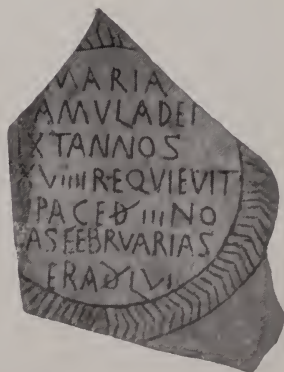 MARIA
AMVLADEI
XTANNOS
XVIIIIREQVIEVIT
PACEDIIINO
ASFEBRVARIAS
ERADLVI